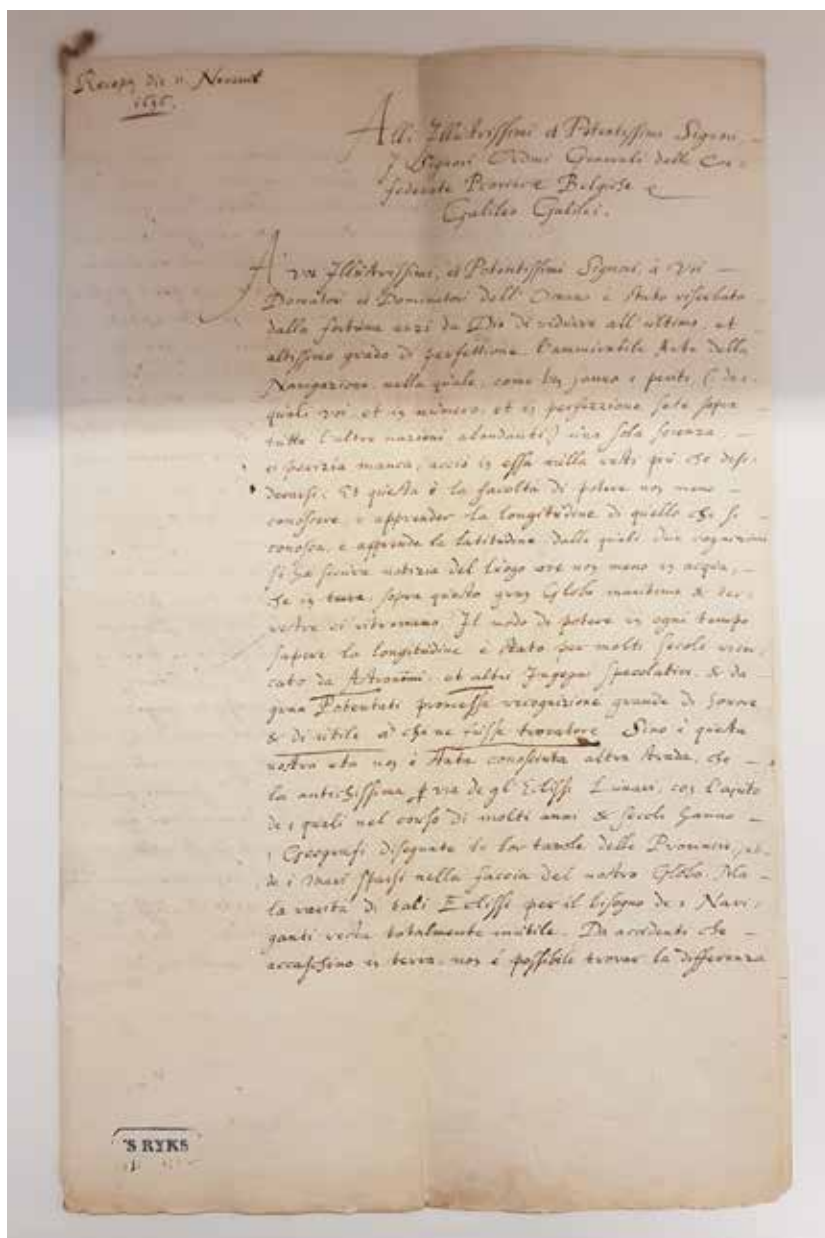 Recepᵗ die 11. Novemb
1636.
Alli Illustrissimi et Potentissimi Signori,
I Signori Ordini Generali delle Con-
federate Provincie Belgiche
Galileo Galilei.
A' voi Illustrissimi, et Potentissimi Signori, à voi
Domatori et Dominatori dell' Oceano è stato riserbato
dalla fortuna anzi da Dio di ridurre all' ultimo, et
altissimo grado di perfettione l'ammirabile Arte della
Navigazione, nella quale, come ben sanno i periti, (de
quali voi, et in numero, et in perfezzione sete sopra
tutte l'altre nazioni abondanti) una sola scienza,
et perizia manca, acciò in essa nulla resti più che desi-
derarsi; Et questa è la facoltà di potere non meno
conoscere, e apprender la longitudine di quello che si
conosca, e apprenda la latitudine dalle quali due cognizioni
si ha sicura notizia del luogo ove non meno in acqua,
che in terra, sopra questo gran Globo maritimo & ter-
restre ci ritroviamo. Il modo di potere in ogni tempo
sapere la longitudine è stato per molti secoli ricer-
cato da Astronomi, et altri Ingegni speculativi, & da
gran Potentati promessa recognizione grande di honore
& di utile a' chi ne fusse trovatore. Sino à questa
nostra età non è stata conosciuta altra strada, che
la antichissima per via de gl' Eclissi Lunari, con l'aiuto
de i quali nel corso di molti anni & secoli hanno
i Geografi disegnate le lor tavole delle Provincie, et
de i mari sparsi nella faccia del nostro Globo. Ma
la rarità di tali Eclissi per il bisogno de i Navi-
ganti resta totalmente inutile. Da accidenti che
accaschino in terra, non è possibile trovar la differenza
'S RYKS